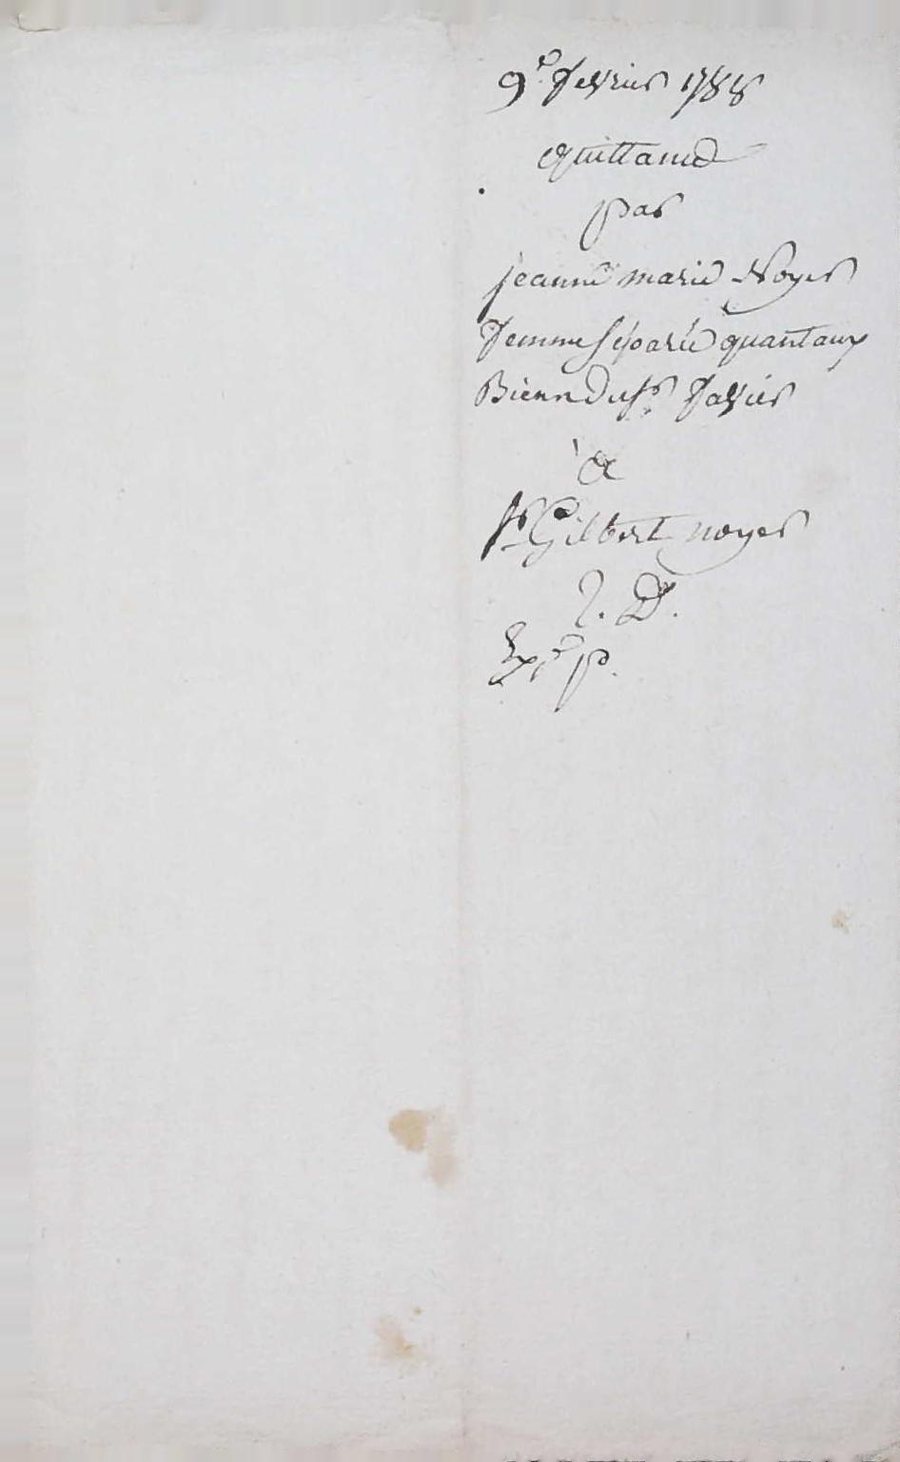 9e fevrier 1788
Quittance
par
jeanne marie Noyer
femme separée quantaux
Biens du sr. favier
a
sr Gilbert noyer
2. D.
Exp.e p.